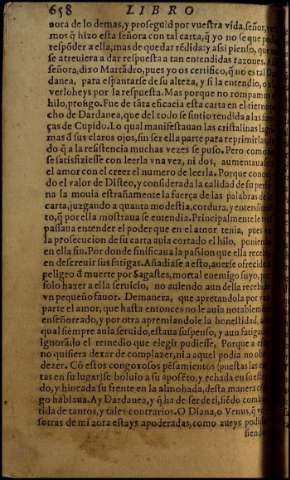 658 LIBRO
nora de lo demas, y proseguid por vuestra vida. señor, ve
mos q̃ hizo esta señora con tal carta, q̃ yo no se que po
respõder a ella, mas de quedar rẽdida: y assi pienso, que
se atreuiera a dar respuesta a tan entendidas razones. A
señora, dixo Marãdro, pues yo os certifico, q̃ no es tal D
danea, para espantarse de su alteza, y si la entendio, o
verloheys por la respuesta. Mas porque no rompamos
hilo, prosigo. Fue de tãta eficacia esta carta en el tierno
cho de Dardanea, que del todo se sintio rendida a las fuer
ças de Cupido. Lo qual manifestauan las cristalinas la
mas d̃ sus claros ojos, sin ser ella parte para reprimirlas
do q̃ a la resistencia muchas vezes se puso. Pero como
se satisfiziesse con leerla vna vez, ni dos, aumentaua
el amor con el creer el numero de leerla. Porque conoc
do el valor de Disteo, y considerada la calidad de su perso
na la mouia estrañamente la fuerça de las palabras de
carta, juzgando a quanta modestia, cordura, y entendimien
to, q̃ por ella mostraua se entendia. Principalmente
passaua entender el poder que en el amor tenia, pues
la prosecucion de su carta auia cortado el hilo, poniendo
en ella fin. Por donde sinificaua la passion que ella recebia
en descreuir sus fatigas. Añadiase a esto, auerse ofrecido
peligro d̃ muerte por Sagastes, mortal enemigo suyo, por
solo hazer a ella seruicio, no auiendo aun della recebido
vn pequeño fauor. De manera, que apretandola por
parte el amor, que hasta entonces no le auia notablemente
enseñoreado, y por otra apremiandole la honestidad,
qual siempre auia seruido, estaua suspenso, y aun fatigado
ignorãdo el remedio que elegir pudiesse. Porque a
no quisiera dexar de complazer, ni a aquel podia no obe
dezer. Cõ estos congoxosos pẽsamientos (puestas las car
tas en su lugar) se boluio a su aposẽto, y echada en su estra
do, y hincada su frente en la almohada, desta manera cõsi
go hablaua. Ay Dardanea, y q̃ ha de ser de ti, siẽdo comba
tida de tantos, y tales contrarios. O Diana, o Venus, q̃
sotras de mi aora estays apoderadas, como aueys podido
siendo